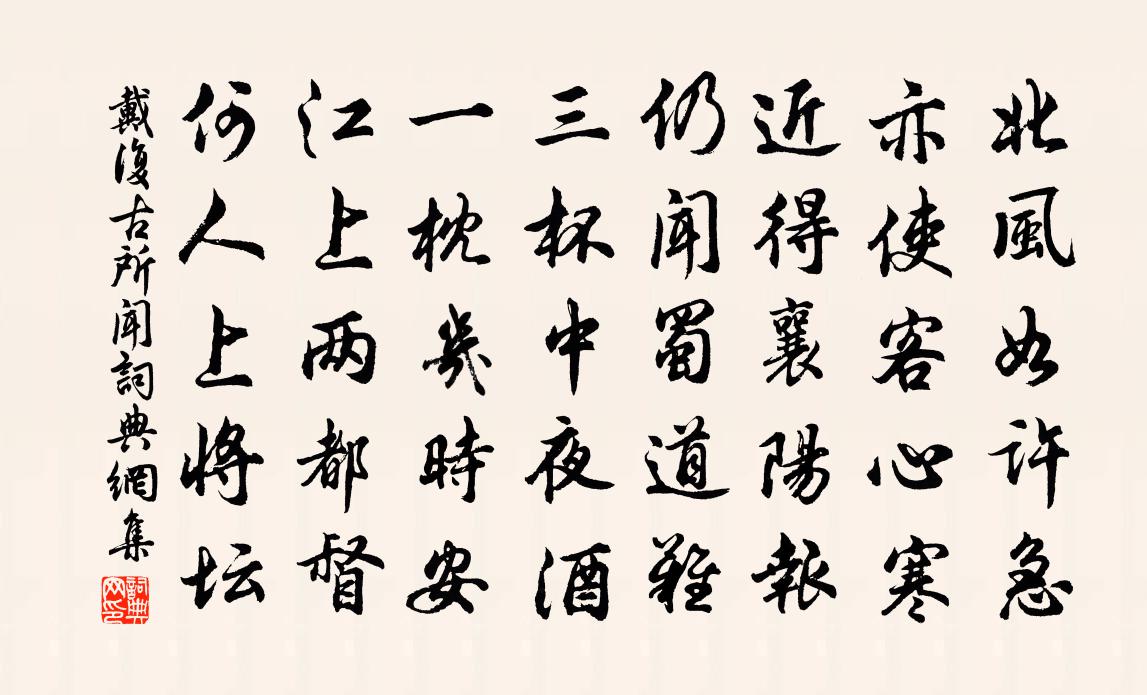 北風如許急
亦使客心寒
近得襄陽報
仍聞蜀道難
三杯中夜酒
一枕幾時安
江上两都督
何人上將坛
戴復古所聞詞典網集
詞典網印